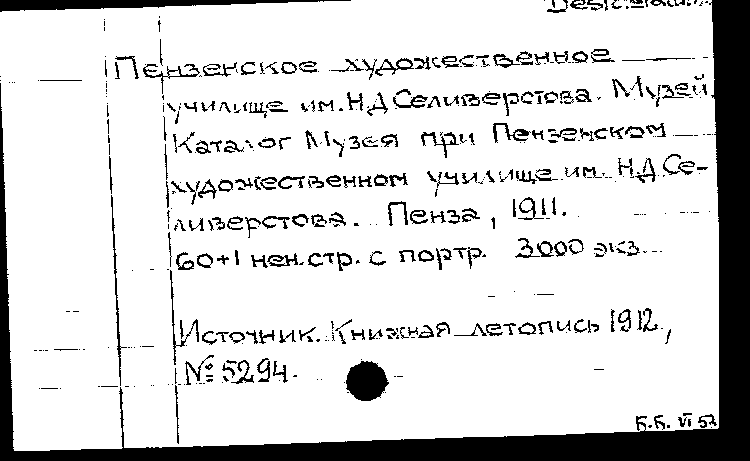 Пензенское художественное
училище им. Н.Д Селиверстова. Музей.
Каталог Музея при Пензенском
художественном училище им. Н.Д Се-
ливерстова. Пенза, 1911.
60+1 нен.стр. с портр. 3000 экз.
Источник. Книжная летопись 1912,
№ 5294.
Б.Б. VI 57